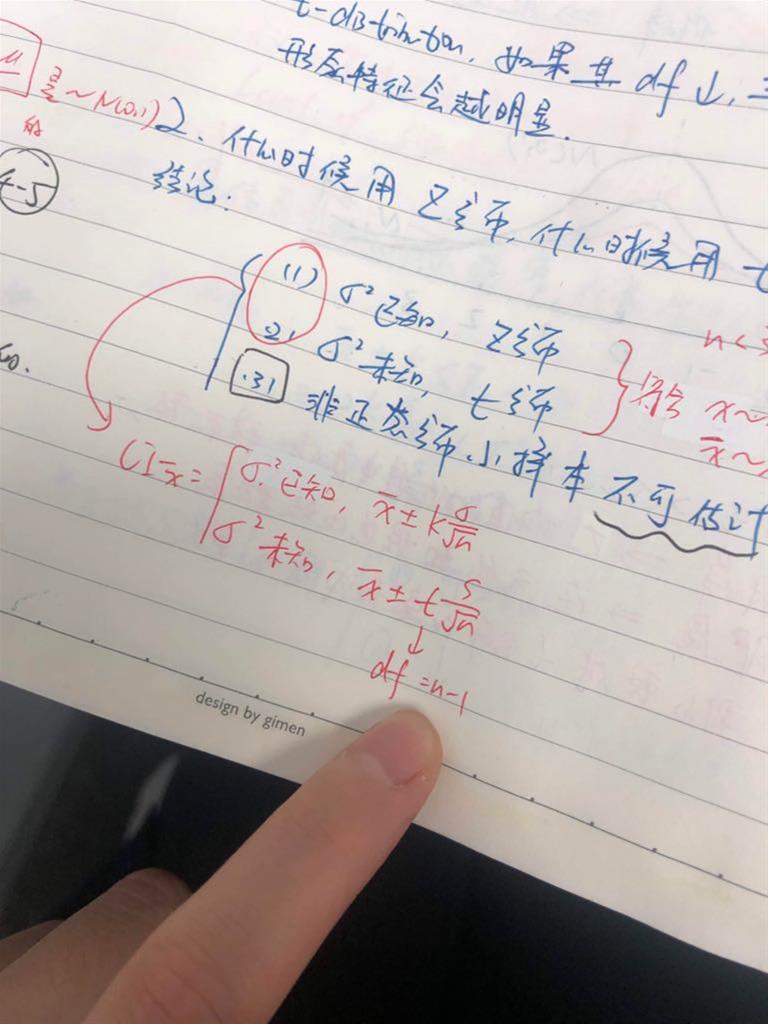 t-distribution, 如果其 df ↓,
形态特征会越明显.
~N(0,1)
的
4-5
2. 什么时候用 Z 分布, 什么时候用 t
结论:
(1) σ² 已知, Z 分布
(2) σ² 未知, t 分布
n <
x ~
x̄ ~
(3) 非正态分布小样本 不可估计
CI x̄ = { σ² 已知, x̄ ± k σ/√n
σ² 未知, x̄ ± t s/√n
↓
df = n-1
design by gimen